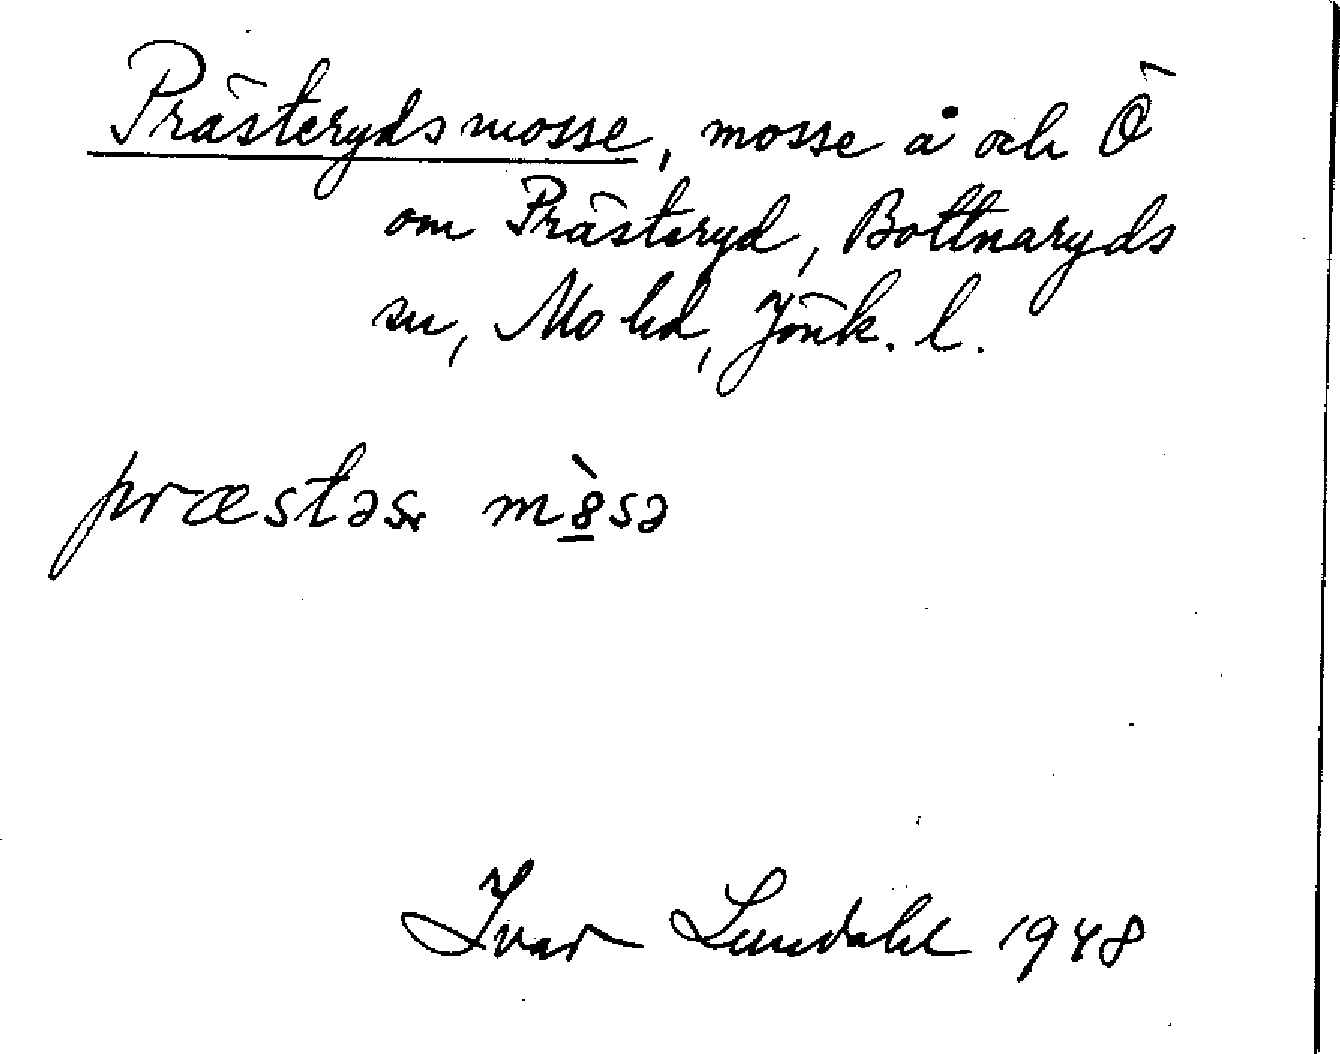 Prästerydsmosse, mosse å och Ö
om Prästeryd, Bottnaryds
sn, Mo hd, Jönk. l.
præstəsr m8̀sə
Ivar Lundahl 1948